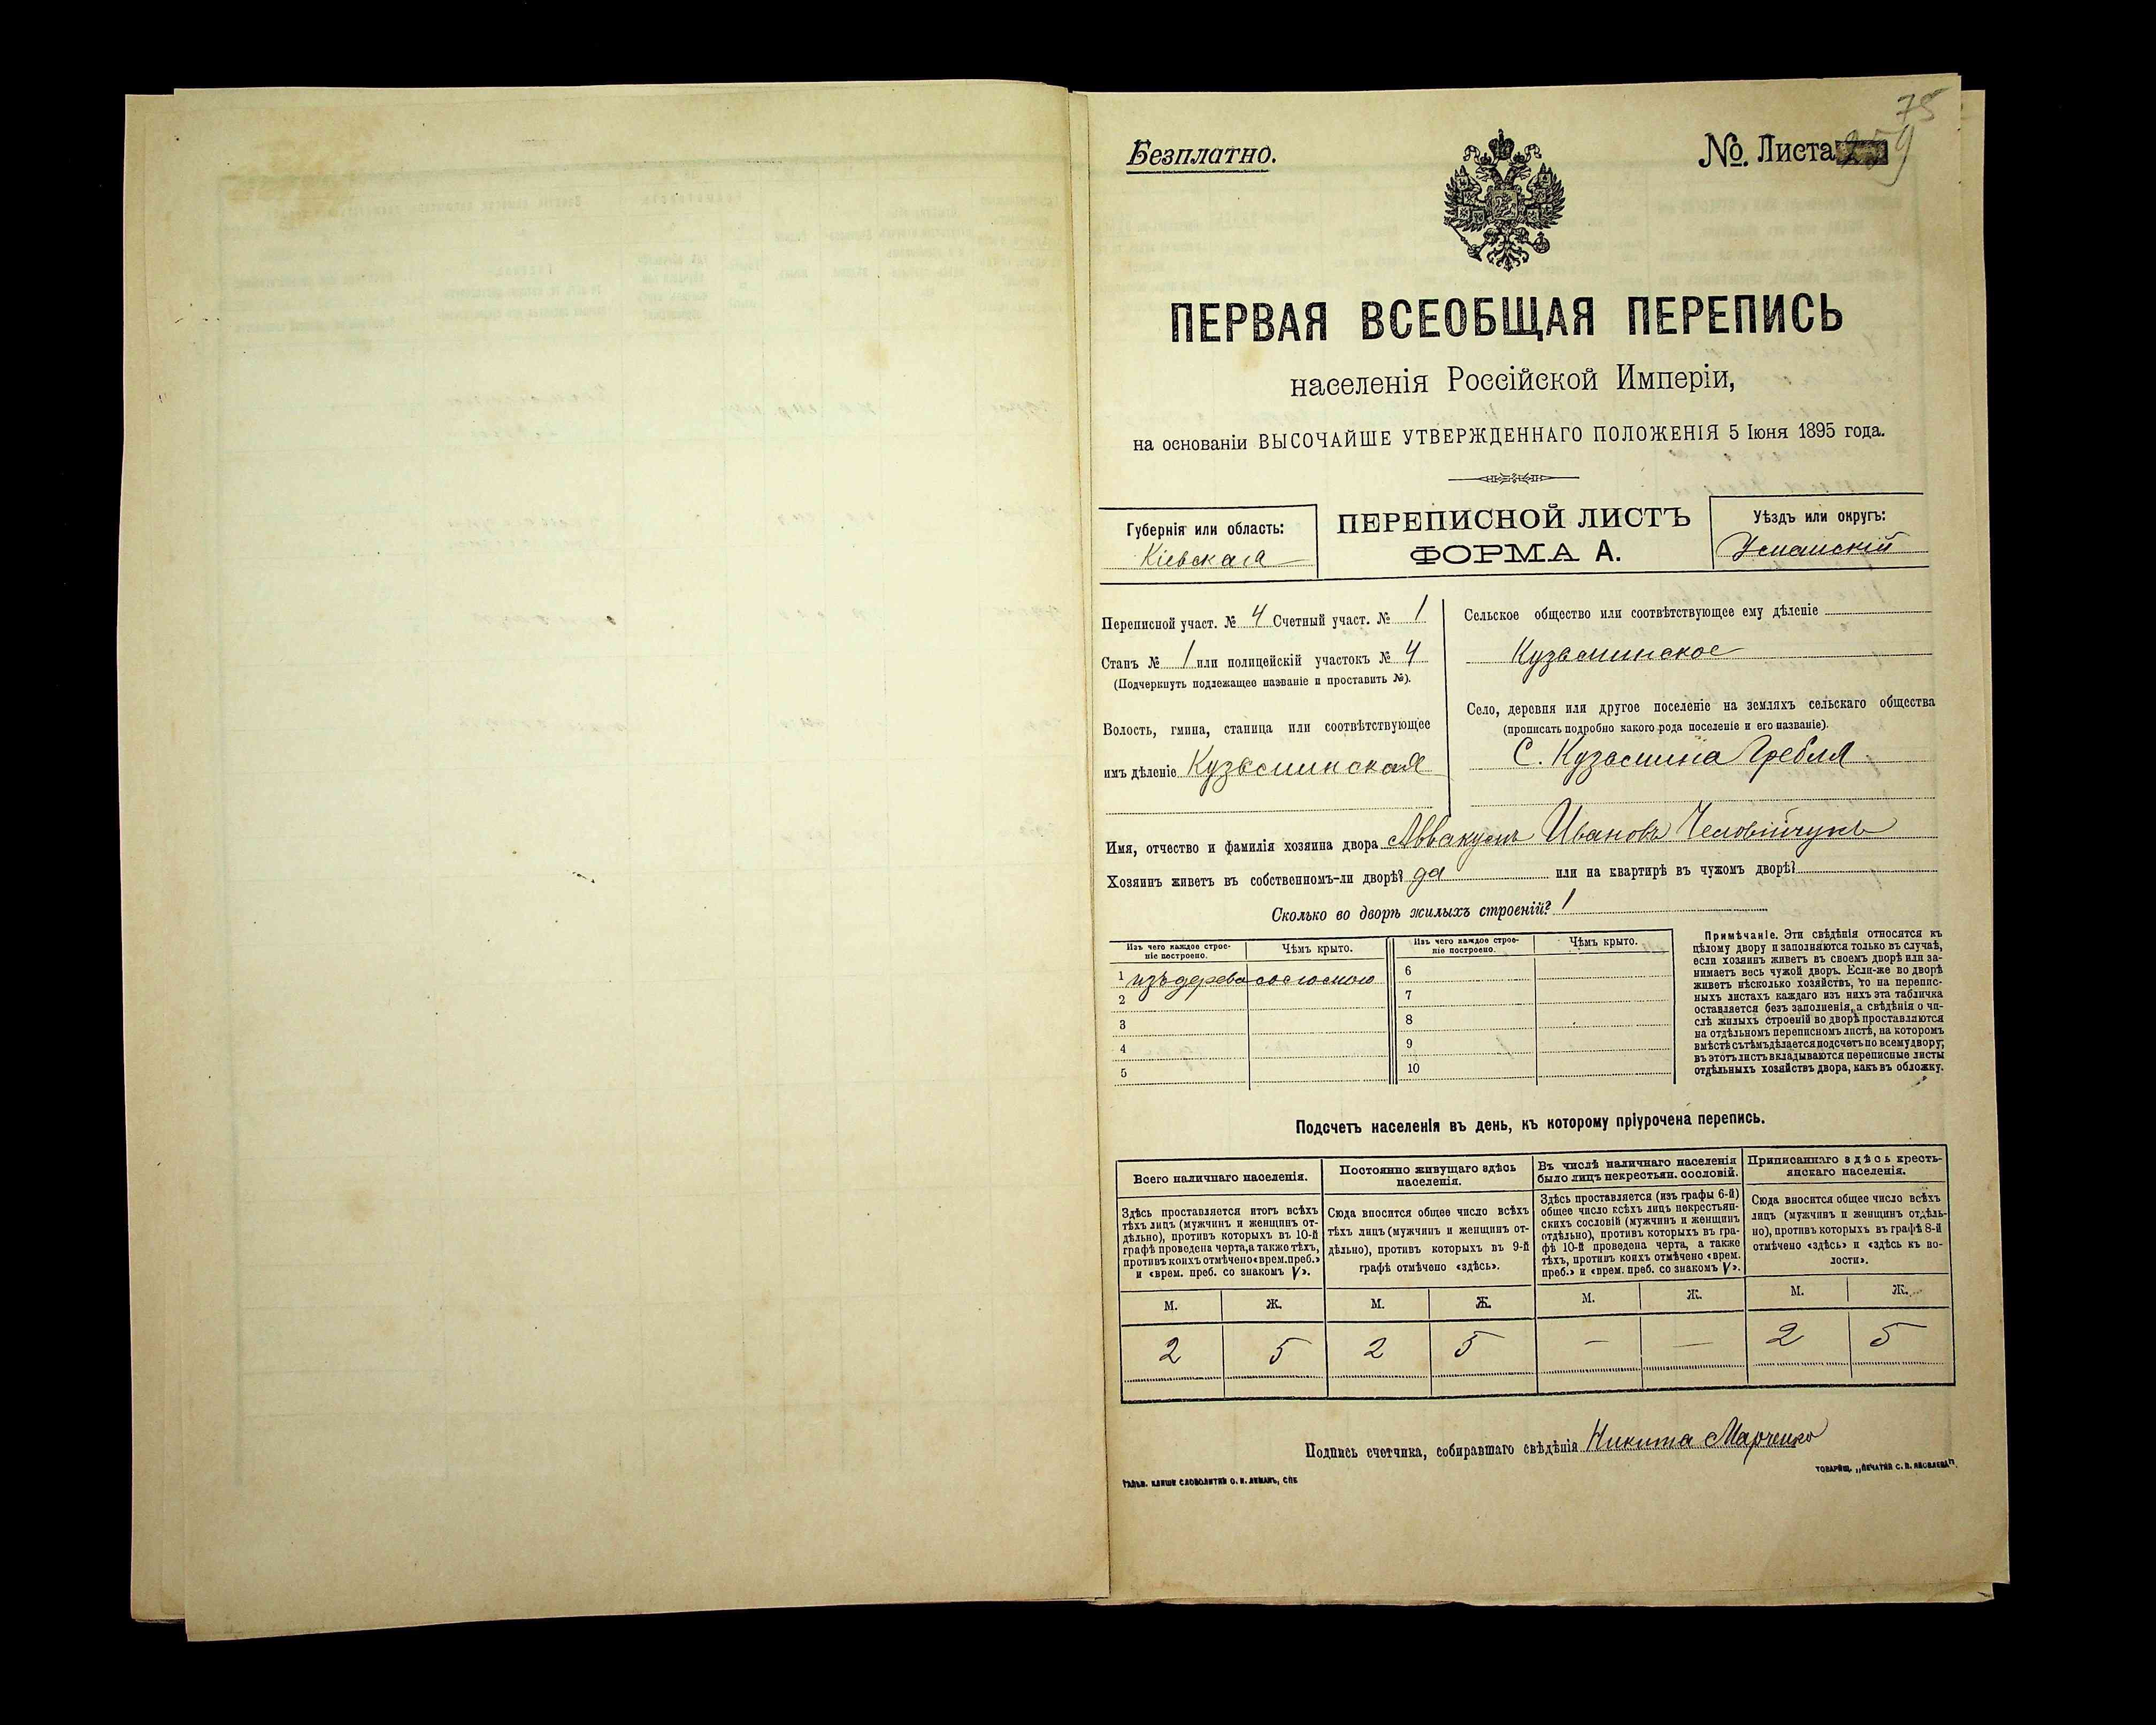 75
Безплатно.
№. Листа 259
ПЕРВАЯ ВСЕОБЩАЯ ПЕРЕПИСЬ
населенія Россійской Имперіи,
на основаніи ВЫСОЧАЙШЕ УТВЕРЖДЕННАГО ПОЛОЖЕНІЯ 5 Іюня 1895 года.
Губернія или область:
Кіевская
ПЕРЕПИСНОЙ ЛИСТЪ
ФОРМА А.
Уѣздъ или округъ:
Уманскій
Переписной участ. № 4 Счетный участ. № 1
Станъ № 1 или полицейскій участокъ № 4
(Подчеркнуть подлежащее названіе и проставить №).
Волость, гмина, станица или соотвѣтствующее
имъ дѣленіе Кузьминская
Сельское общество или соотвѣтствующее ему дѣленіе
Кузьминское
Село, деревня или другое поселеніе на земляхъ сельскаго общества
(прописать подробно какого рода поселеніе и его названіе).
С. Кузьмина Гребля
Имя, отчество и фамилія хозяина двора Аввакумъ Ивановъ Человійчукъ
Хозяинъ живетъ въ собственномъ-ли дворѣ? да или на квартирѣ въ чужомъ дворѣ?
Сколько во дворѣ жилыхъ строеній? 1
Изъ чего каждое строе-
ніе построено.
Чѣмъ крыто.
Изъ чего каждое строе-
ніе построено.
Чѣмъ крыто.
1 изъ дерева соломою
2
3
4
5
6
7
8
9
10
Примѣчаніе. Эти свѣдѣнія относятся къ
цѣлому двору и заполняются только въ случаѣ,
если хозяинъ живетъ въ своемъ дворѣ или за-
нимаетъ весь чужой дворъ. Если-же во дворѣ
живетъ нѣсколько хозяйствъ, то на перепис-
ныхъ листахъ каждаго изъ нихъ эта табличка
оставляется безъ заполненія, а свѣдѣнія о чи-
слѣ жилыхъ строеній во дворѣ проставляются
на отдѣльномъ переписномъ листѣ, на которомъ
вмѣстѣ съ тѣмъ дѣлается подсчетъ по всему двору;
въ этотъ листъ вкладываются переписные листы
отдѣльныхъ хозяйствъ двора, какъ въ обложку.
Подсчетъ населенія въ день, къ которому пріурочена перепись.
Всего наличнаго населенія.
Здѣсь проставляется итогъ всѣхъ
тѣхъ лицъ (мужчинъ и женщинъ от-
дѣльно), противъ которыхъ въ 10-й
графѣ проведена черта, а также тѣхъ,
противъ коихъ отмѣчено «врем. преб.»
и «врем. преб. со знакомъ V».
Постоянно живущаго здѣсь
населенія.
Сюда вносится общее число всѣхъ
тѣхъ лицъ (мужчинъ и женщинъ от-
дѣльно), противъ которыхъ въ 9-й
графѣ отмѣчено «здѣсь».
Въ числѣ наличнаго населенія
было лицъ некрестьян. сословій.
Здѣсь проставляется (изъ графы 6-й)
общее число всѣхъ лицъ некрестьян-
скихъ сословій (мужчинъ и женщинъ
отдѣльно), противъ которыхъ въ гра-
фѣ 10-й проведена черта, а также
тѣхъ, противъ коихъ отмѣчено «врем.
преб.» и «врем. преб. со знакомъ V».
Приписаннаго здѣсь кресть-
янскаго населенія.
Сюда вносится общее число всѣхъ
лицъ (мужчинъ и женщинъ отдѣль-
но), противъ которыхъ въ графѣ 8-й
отмѣчено «здѣсь» и «здѣсь къ во-
лости».
М. Ж. М. Ж. М. Ж. М. Ж.
2 5 2 5 — — 2 5
Подпись счетчика, собиравшаго свѣдѣнія Никита Марченко
ГАЛЬВ. КЛИШЕ СЛОВОЛИТНИ О. И. ЛЕМАНЪ, СПБ
ТОВАРИЩ. „ПЕЧАТНЯ С. П. ЯКОВЛЕВА".